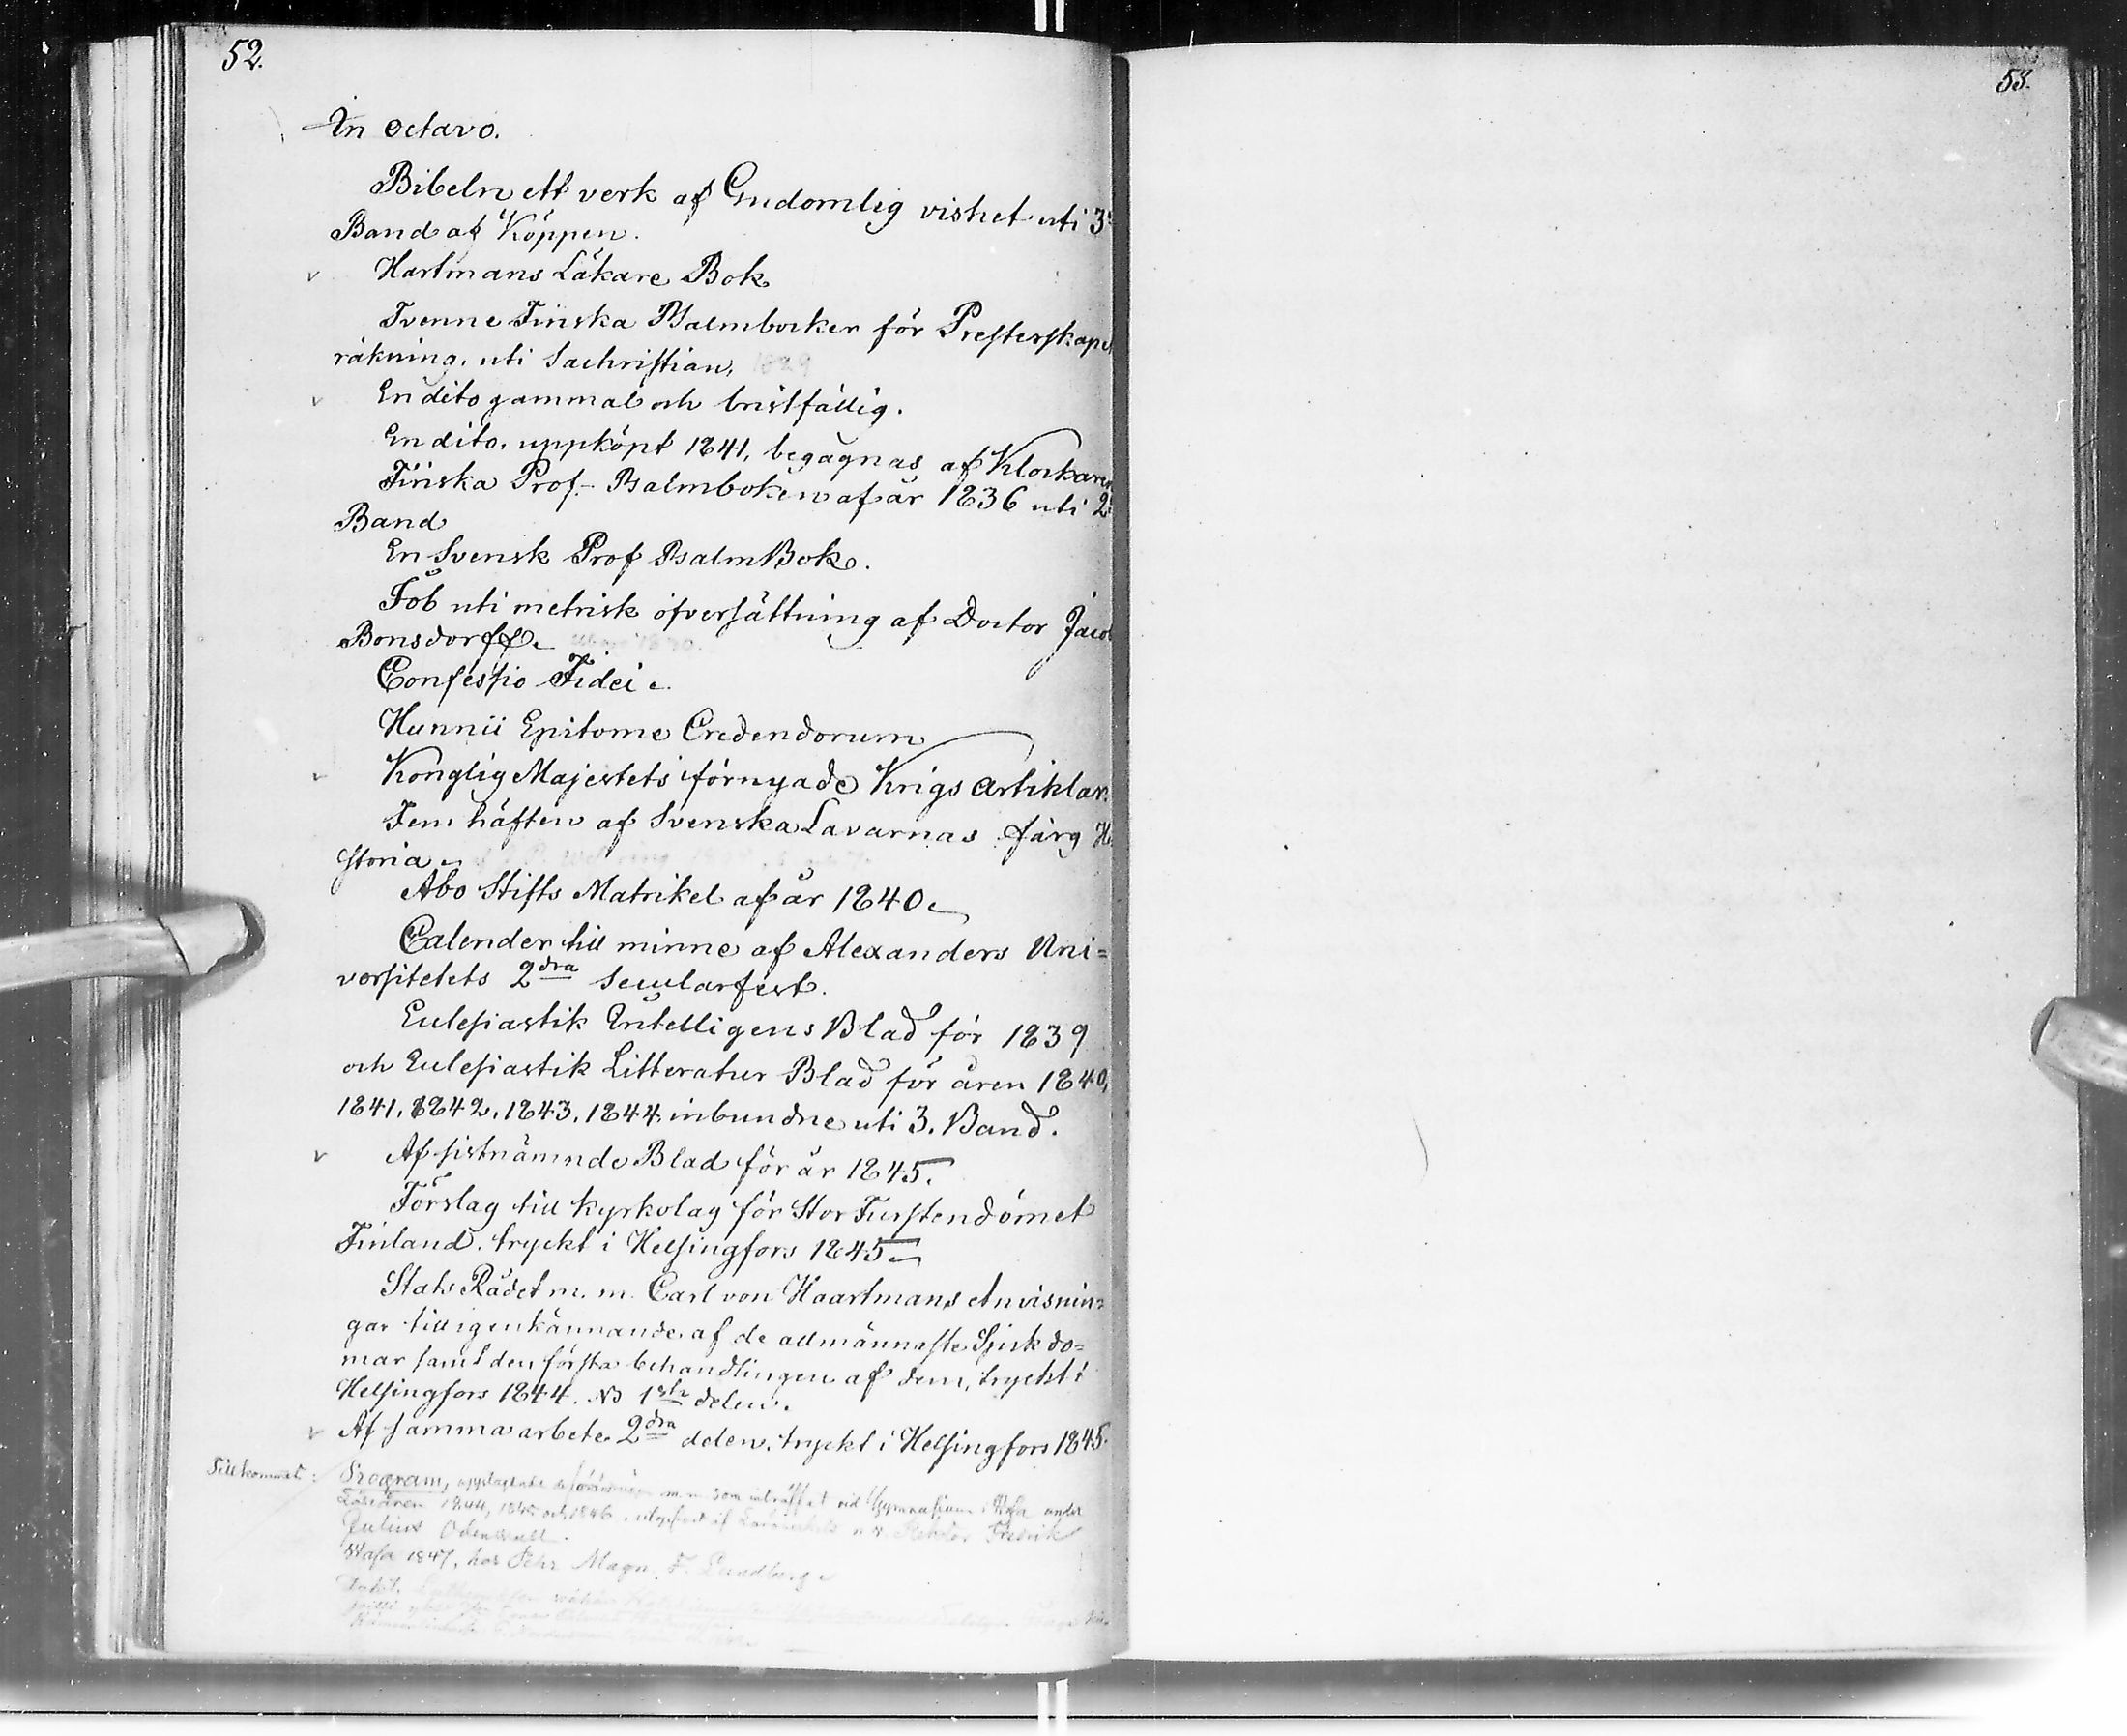 52.
In octavo.
Bibeln ett verk af Gudomlig vishet uti 3:
Band af Köppen.
v Hartmans Läkare Bok
Tvenne Finska Psalmböcker för Presterskapets
räkning, uti Sachristian, 1829
v En dito gammal och bristfällig.
En dito, uppköpt 1841, begagnas af Klockaren
Finska Prof-Psalmboken af år 1836 uti 2:
Band
En Svensk Prof PsalmBok.
Job uti metrisk öfversättning af Doctor Jacob
Bonsdorff.
Confessio Fidei.
Hunnii Epitome Credendorum
v Konglig Majestets förnyade Krigs Artiklar.
Fem häften af Svenska Lavarnas färg Hi
storia
Åbo Stifts Matrikel af år 1840.
Calender till minne af Alexanders Uni=
versitetets 2dra Secularfest.
Eclesiastik Intelligens Blad för 1839
och Eclesiastik Litteratur Blad för åren 1840,
1841, 1842, 1843, 1844 inbundne uti 3. Band.
v Af sistnämnde Blad för år 1845.
Förslag till kyrkolag för Stor Furstendömet
Finland. tryckt i Helsingfors 1845
Stats Rådet m. m. Carl von Haartmans Anvisnin=
gar till igenkännande af de allmännaste Sjukdo=
mar samt den första behandlingen af dem, tryckt i
Helsingfors 1844. NB 1sta delen.
v Af samma arbete 2dra delen, tryckt i Helsingfors 1845.
Tillkommit: Program, m.m. som inträffat vid Gymnasium i Wasa under
Läseåren 1844, 1845 och 1846, Rektor Fredrik
Julius Odenvall.
Wasa 1847, hos
53.